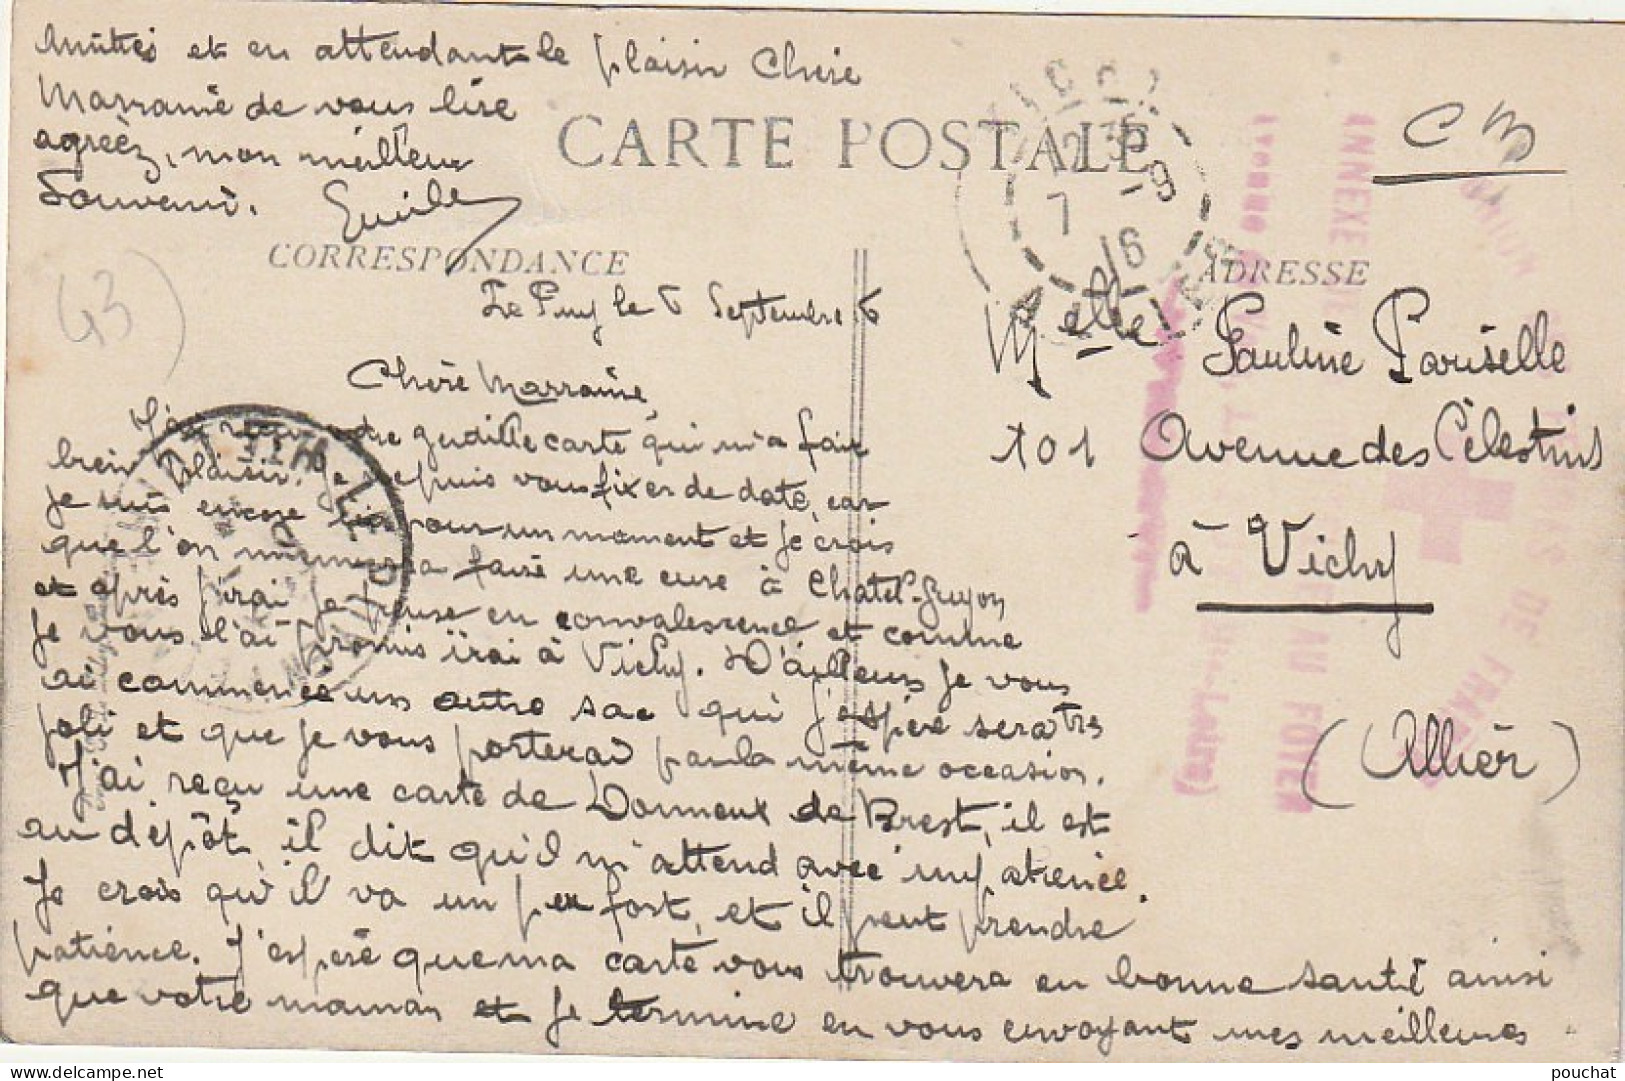 Amitiés et en attendant le plaisir Chère
Marraine de vous lire
agréez, mon meilleur
Souvenir. Emile
CARTE POSTALE
CM
CORRESPONDANCE
ADRESSE
43)
12 35
7 -9
16
ANNEXE
UNION
DE FRANCE
AU FOYER
Le Puy le 6 Septembre 16
Chère Marraine,
J'ai reçu votre gentille carte qui m'a fait
bien plaisir. Je ne puis vous fixer de date, car
je suis encore ici pour un moment et je crois
que l'on m'enverra faire une cure à Chatel-Guyon
et après j'irai je pense en convalescence et comme
je vous l'ai promis irai à Vichy. D'ailleurs je vous
ai commencé un autre sac qui j'espère sera très
joli et que je vous porterai par la même occasion.
J'ai reçu une carte de Donneux de Brest, il est
au dépôt, il dit qu'il m'attend avec impatience.
Je crois qu'il va un peu fort, et il peut prendre
patience. J'espère que ma carte vous trouvera en bonne santé ainsi
que votre maman et je termine en vous envoyant mes meilleures
Melle Pauline Pariselle
101 Avenue des Célestins
à Vichy
(Allier)
pouchat